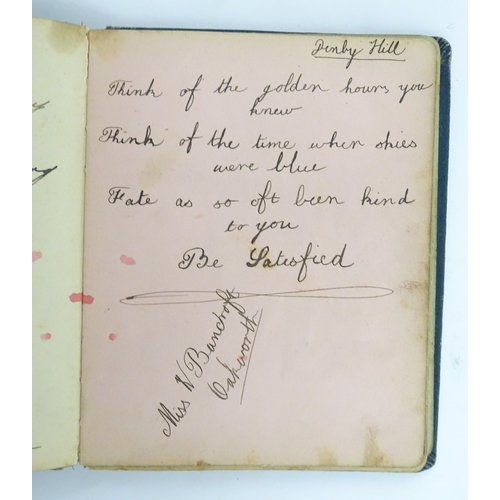 Denby Hill
Think of the golden hours you
knew
Think of the time when skies
were blue
Fate as so oft been kind
to you
Be Satisfied
Miss W Bancroft
Oakworth